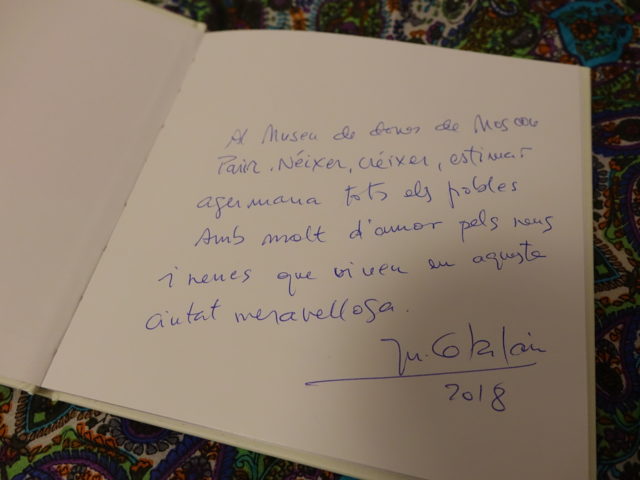 Al Museu de dones de Moscou
Parir. Néixer, créixer, estimar
agermana tots els pobles
Amb molt d'amor pels nens
i nenes que viuen en aquesta
ciutat meravellosa.
2018